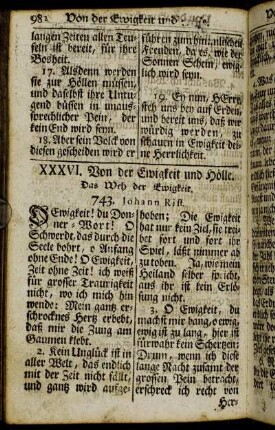 982 Von der Ewigkeit und
langen Zeiten allen Teu-
feln ist bereit, für ihre
Bosheit.
17. Alsdenn werden
sie zur Höllen müssen,
und daselbst ihre Untu-
gend büssen in unaus-
sprechlicher Pein, der
kein End wird seyn.
18. Aber sein Volck von
diesen gescheiden wird er
führen zum himmlischen
Freuden, da es, wie der
Sonnen Schein, ewig-
lich wird seyn.
19. Ey nun, HErr,
steh uns bey auf Erden,
und bereit uns, daß wir
würdig werden, zu
schauen in Ewigkeit dei-
ne Herrlichkeit.
XXXVI. Von der Ewigkeit und Hölle.
Das Weh der Ewigkeit.
743. Johann Rist.
O Ewigkeit! du Don-
ner-Wort! O
Schwerdt, das durch die
Seele bohrt, o Anfang
ohne Ende! O Ewigkeit,
Zeit ohne Zeit! ich weiß
für grosser Traurigkeit
nicht, wo ich mich hin
wende: Mein gantz er-
schrocknes Hertz erbebt,
daß mir die Zung am
Gaumen klebt.
2. Kein Unglück ist in
aller Welt, das endlich
mit der Zeit nicht fällt,
und gantz wird aufge-
hoben: Die Ewigkeit
hat nur kein Ziel, sie trei-
bet fort und fort ihr
Spiel, läßt nimmer ab
zu toben, Ja, wie mein
Heiland selber spricht,
aus ihr ist kein Erlö-
sung nicht.
3. O Ewigkeit, du
machst mir bang, o ewig,
ewig ist zu lang, hier ist
fürwahr kein Schertzen:
Drum, wenn ich diese
lange Nacht zusamt der
grossen Pein betracht,
erschreck ich recht von
Her-